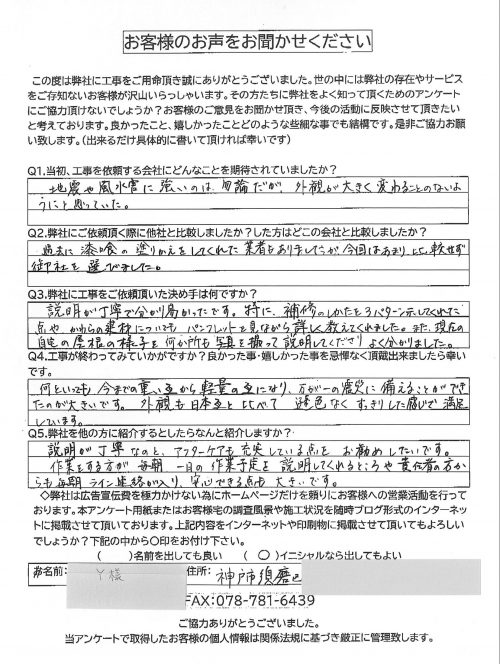 お客様のお声をお聞かせください
この度は弊社に工事をご用命頂き誠にありがとうございました。世の中には弊社の存在やサービス
をご存知ないお客様が沢山いらっしゃいます。その方たちに弊社をよく知って頂くためのアンケート
にご協力頂けないでしょうか？お客様のご意見をお聞かせ頂き、今後の活動に反映させて頂きたい
と考えております。良かったこと、嬉しかったことどのような些細な事でも結構です。是非ご協力お願
い致します。（出来るだけ具体的に書いて頂ければ幸いです）
Q1.当初、工事を依頼する会社にどんなことを期待されていましたか？
地震や風水害に強いのは勿論だが、外観が大きく変わることのないよ
うにと思っていた。
Q2.弊社にご依頼頂く際に他社と比較しましたか？した方はどこの会社と比較しましたか？
過去に漆喰の塗りかえをしてくれた業者もありましたが今回はあまり比較せず
御社を選びました。
Q3.弊社に工事をご依頼頂いた決め手は何ですか？
説明が丁寧で分かり易かったです。特に、補修のしかたを3パターン示してくれた
点やかわらの素材についてもパンフレットを見ながら詳しく教えてくれました。また、現在の
自宅の屋根の様子を何か所も写真を撮って説明してくださりよく分かりました。
Q4.工事が終わってみていかがですか？良かった事・嬉しかった事を忌憚なく頂戴出来ましたら幸い
です。
何といっても今までの重い瓦から軽量の瓦になり、万が一の震災に備えることができ
たのが大きいです。外観も日本瓦と比べて遜色なくすっきりした感じで満足
しています。
Q5.弊社を他の方に紹介するとしたらなんと紹介しますか？
説明が丁寧なのと、アフターケアも充実している点をお勧めしたいです。
作業をする方が毎朝一日の作業予定を説明してくれるところや責任者の方か
らも毎朝ライン連絡が入り、安心できる点も大きいです。
◇弊社は広告宣伝費を極力かけない為にホームページだけを頼りにお客様への営業活動を行って
おります。本アンケート用紙またはお客様宅の調査風景や施工状況を随時ブログ形式のインターネッ
トに掲載させて頂いております。上記内容をインターネットや印刷物に掲載させて頂いてもよろしい
でしょうか？下記の中から〇印をお付け下さい。
（　　）名前を出しても良い　（ 〇 ）イニシャルなら出してもよい
お名前： Y様 住所： 神戸市須磨区
FAX：078-781-6439
ご協力ありがとうございました。
当アンケートで取得したお客様の個人情報は関係法規に基づき厳正に管理致します。